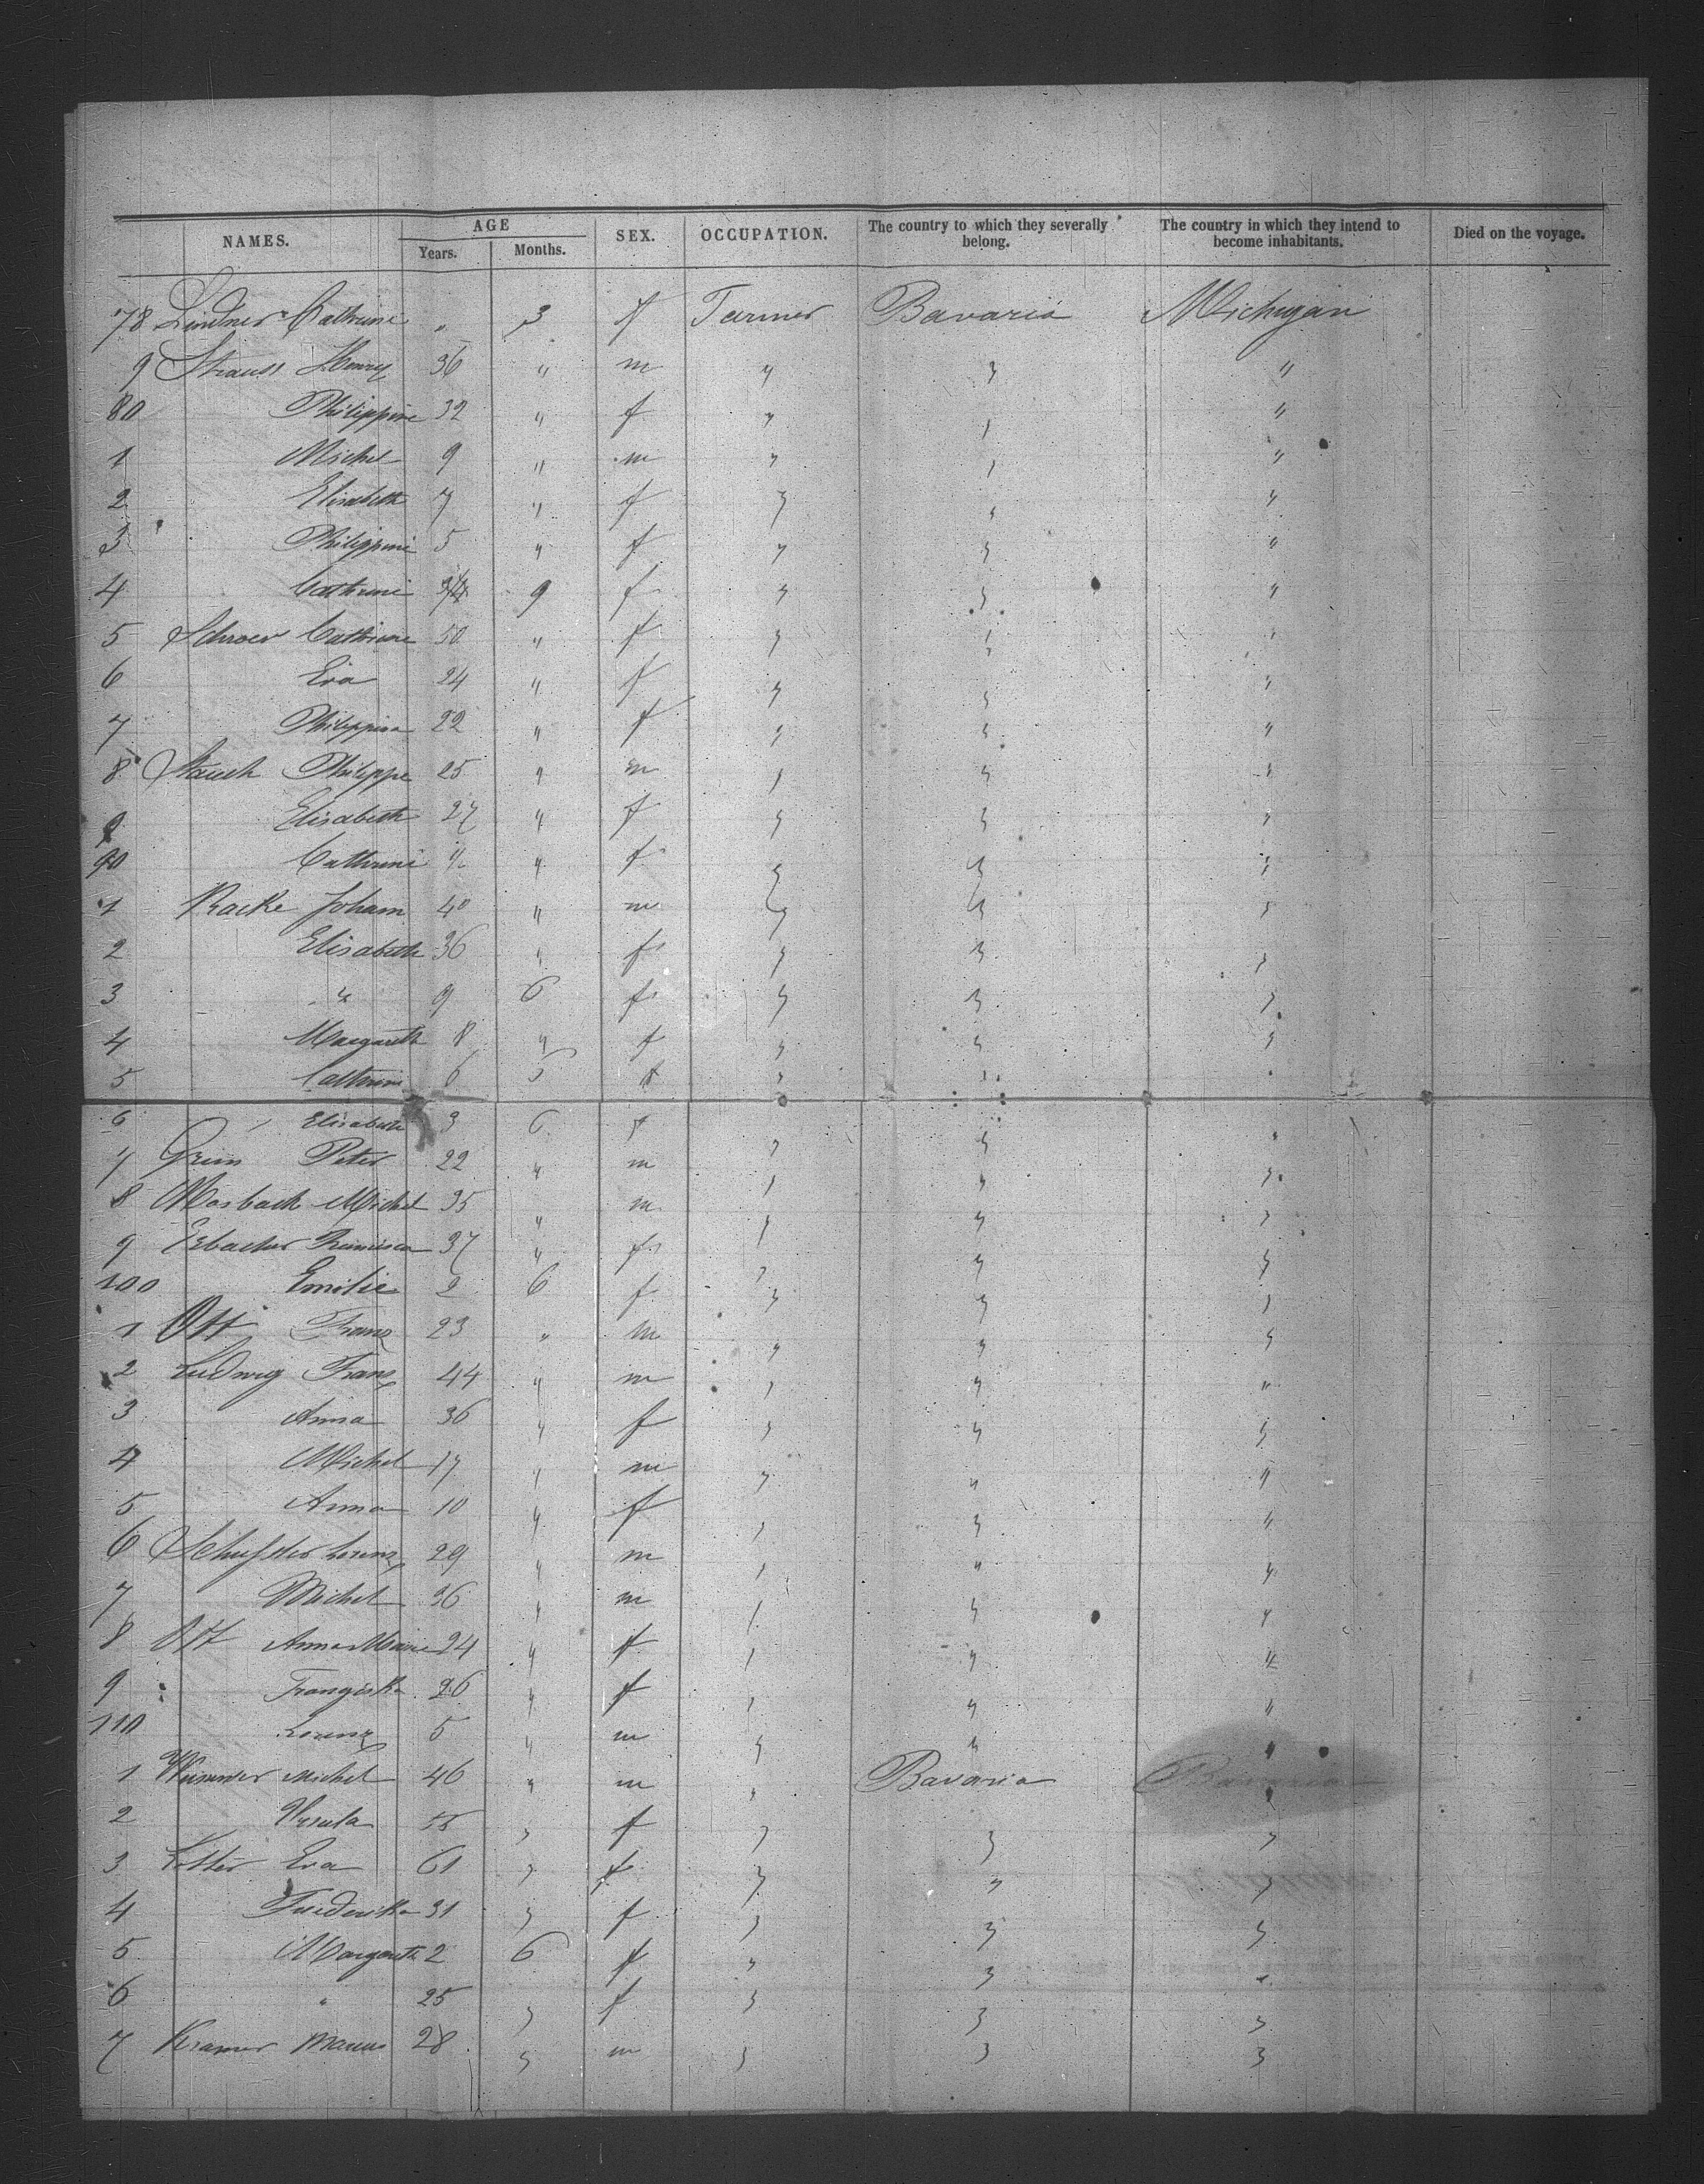 NAMES. AGE Years. Months. SEX. OCCUPATION. The country to which they severally belong. The country in which they intend to become inhabitants. Died on the voyage.
78 Lindner Cathrine " 3 f Farmer Bavaria Michigan
9 Strauss Henry 36 " m " " "
80 Philippine 32 " f " " "
1 Michel 9 " m " " "
2 Elisabeth 7 " f " " "
3 Philippine 5 " f " " "
4 Cathrine 9 f " " "
5 Schroer Cathrine 50 " f " " "
6 Eva 24 " f " " "
7 Philippina 22 " f " " "
8 Strauch Philippe 25 " m " " "
9 Elisabeth 27 " f " " "
90 Cathrine " f " " "
1 Racke Johann 40 " m " " "
2 Elisabeth 36 " f " " "
3 " 9 6 f " " "
4 Margareth 8 " f " " "
5 Cathrine 6 5 f " " "
6 Elisabeth 3 6 f " " "
7 Grim Peter 22 " m " " "
8 Mosbach Michel 35 " m " " "
9 Erbacher 37 " f " " "
100 Emilie 2 6 f " " "
1 Ott Franz 23 " m " " "
2 Ludwig Franz 44 " m " " "
3 Anna 36 " f " " "
4 Michel 17 " m " " "
5 Anna 10 " f " " "
6 Schuster Lorenz 29 " m " " "
7 Michel 36 " m " " "
8 Ott Anna Marie 24 " f " " "
9 Franziska 26 " f " " "
110 Lorenz 5 " m " " "
1 Wimmer Michel 46 " m " Bavaria "
2 Ursula 55 " f " " "
3 Eva 61 " f " " "
4 Friederika 31 " f " " "
5 Margareth 2 6 f " " "
6 " 25 " f " " "
7 Kramer Marcus 28 " m " " "